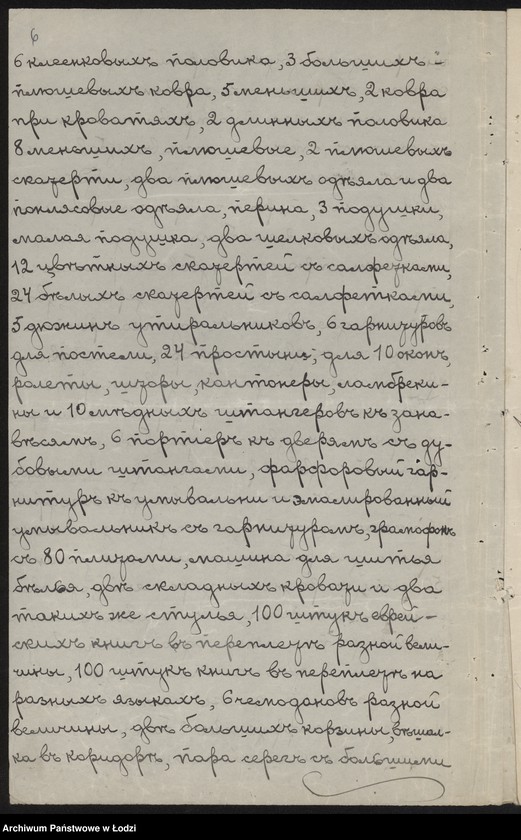 6
6 клеенковыхъ половика, 3 большихъ
плюшевыхъ ковра, 5 меньшихъ, 2 ковра
при кроватяхъ, 2 длинныхъ половика
8 меньшихъ, плюшевые, 2 плюшевыхъ
скатерти, два плюшевыхъ одѣяла и два
поплясовые одѣяла, перина, 3 подушки,
малая подушка, два шелковыхъ одѣяла,
12 цвѣтныхъ скатертей съ салфетками,
24 бѣлыхъ скатертей съ салфетками,
5 дюжинъ утиральниковъ, 6 гарнитуровъ
для постели, 24 простыни; для 10 оконъ,
ролеты, шторы, кантонеры, ламбреки-
ны и 10 мѣдныхъ штангеровъ къ зана-
вѣсямъ, 6 портьеръ къ дверямъ съ ду-
бовыми штангами, фарфоровый гар-
нитуръ къ умывальни и эмалированный
умывальникъ съ гарнитуромъ, грамофонъ
съ 80 плитами, машина для шитья
бѣлья, двѣ складныхъ кровати и два
такихъ же стулья, 100 штукъ еврей-
скихъ книгъ въ переплетѣ разной вели-
чины, 100 штукъ книгъ въ переплетѣ на
разныхъ языкахъ, 6 чемодановъ разной
величины, двѣ большихъ корзины, вѣшал-
ка въ коридорѣ, пара серегъ съ большими
Archiwum Państwowe w Łodzi